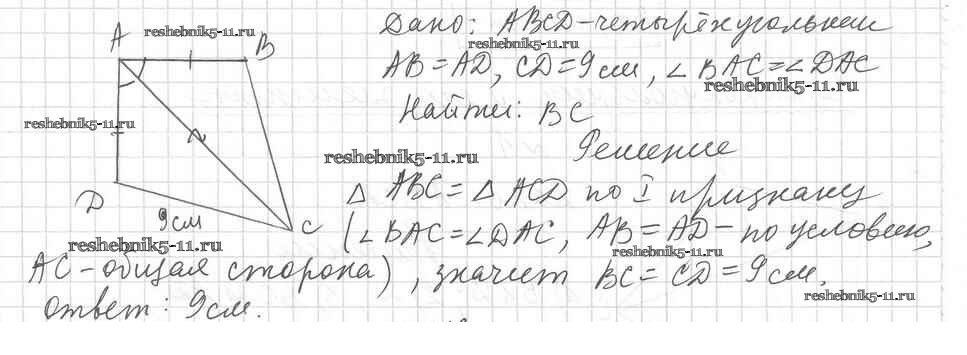 A
B
D
C
9 см
Дано: ABCD-четырёхугольник
AB = AD, CD = 9 см, ∠ BAC = ∠ DAC
Найти: BC
Решение
△ ABC = △ ACD по I признаку
(∠ BAC = ∠ DAC, AB = AD - по условию,
AC - общая сторона), значит BC = CD = 9 см.
Ответ: 9 см.
reshebnik5-11.ru
reshebnik5-11.ru
reshebnik5-11.ru
reshebnik5-11.ru
reshebnik5-11.ru
reshebnik5-11.ru
reshebnik5-11.ru
reshebnik5-11.ru